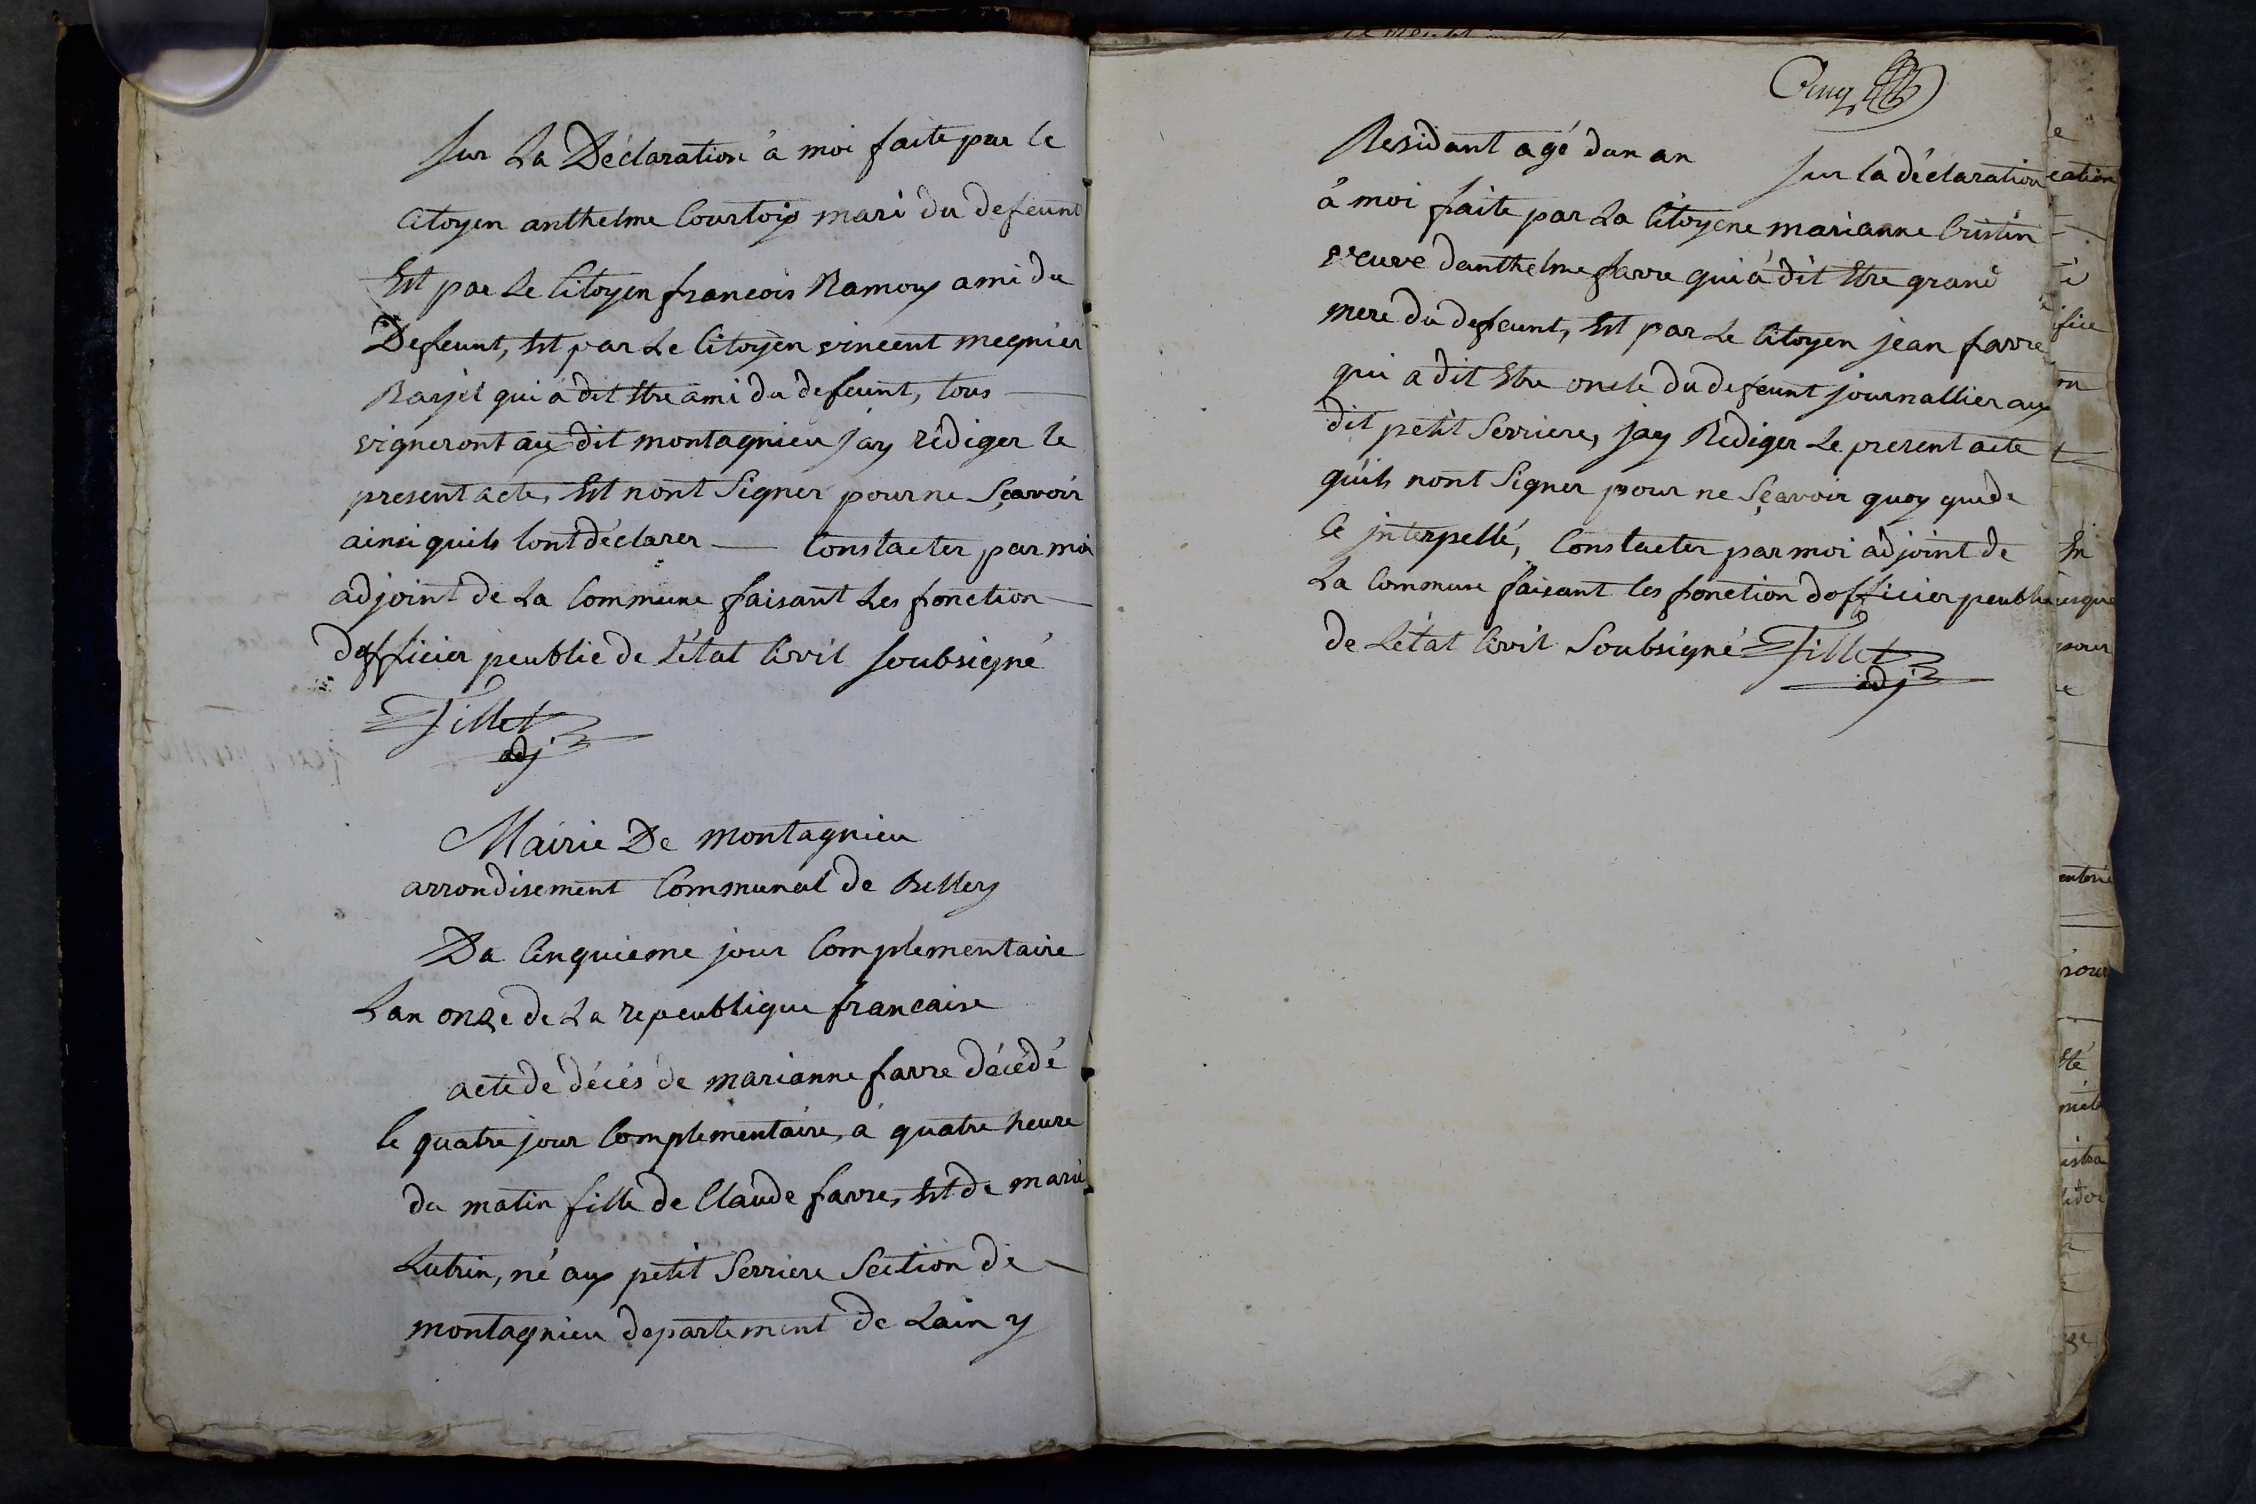 sur La Déclaration à moi faite par le
Citoyen anthelme Courtois mari du defeunt
Est par Le Citoyen francois Ramoux ami du
Defeunt, Est par Le Citoyen vincent megnier
qui à dit Etre ami du defeunt, tous
vigneront aux dit montagnieu jay rédiger le
present acte, Est nont Signer pour ne Sçavoir
ainsi quils lont déclarer — Constacter par moi
adjoint de La Commune faisant Les fonction
dofficier peublic de Létat Civil soubsigné
Tillet
adj
Mairie De montagnieu
arrondisement Communal de Belley
Du Cinquieme jour Complementaire
Lan onze de La repeublique francaise
acte de décés de marianne favre décédé
le quatre jour Complementaire, à quatre heure
du matin fille de Claude favre, Est de marie
Lutrin, né aux petit Serriere Section de
montagnieu departement de Lain y
Cinq
Residant agé dun an sur la déclaration
à moi faite par La Citoyene marianne Cristin
veuve danthelme favre qui à dit Etre grand
mere du defeunt, Est par Le Citoyen jean favre
qui a dit Etre oncle du defeunt journallier aux
dit petit Serriere, jay Rediger Le present acte
quils nont Signer pour ne Sçavoir quoy que de
Ce jnterpellé, Constacter par moi adjoint de
La Commune faisant les fonction dofficier peublic
de Létat Civil Soubsigné Tillet
adj